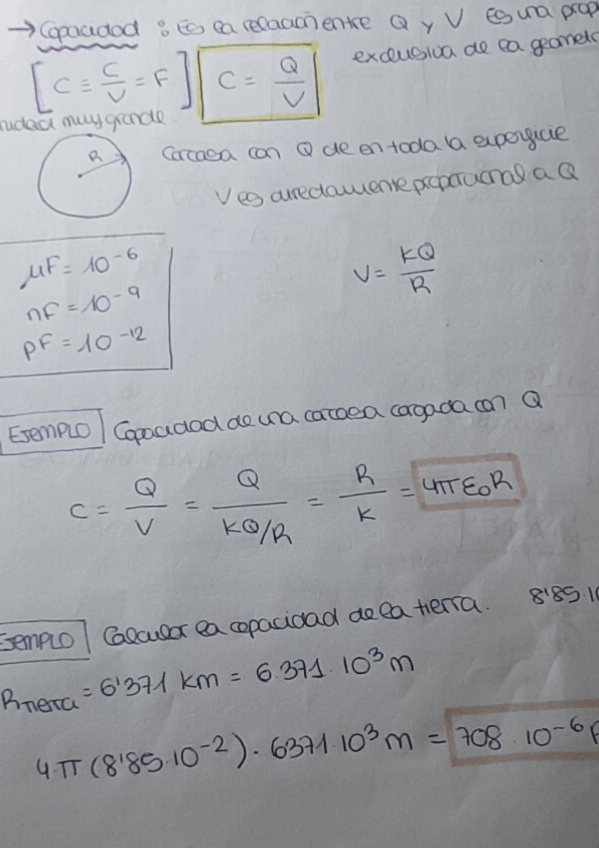 → Capacidad : Es la relación entre Q y V Es una prop
exclusiva de la geomet
[C = C/V = F] C = Q/V
muy grande
R
Carcasa con Q de en toda la superficie
V es directamente proporcional a Q
μF = 10⁻⁶
nF = 10⁻⁹
pF = 10⁻¹²
V = KQ/R
EJEMPLO Capacidad de una carcasa cargada con Q
C = Q/V = Q/KQ/R = R/K = 4πε₀R
EJEMPLO Calcular la capacidad de la tierra. 8'85.10
Rtierra = 6'371 km = 6.371.10³ m
4.π (8'85.10⁻²) . 6371.10³ m = 708 . 10⁻⁶ F